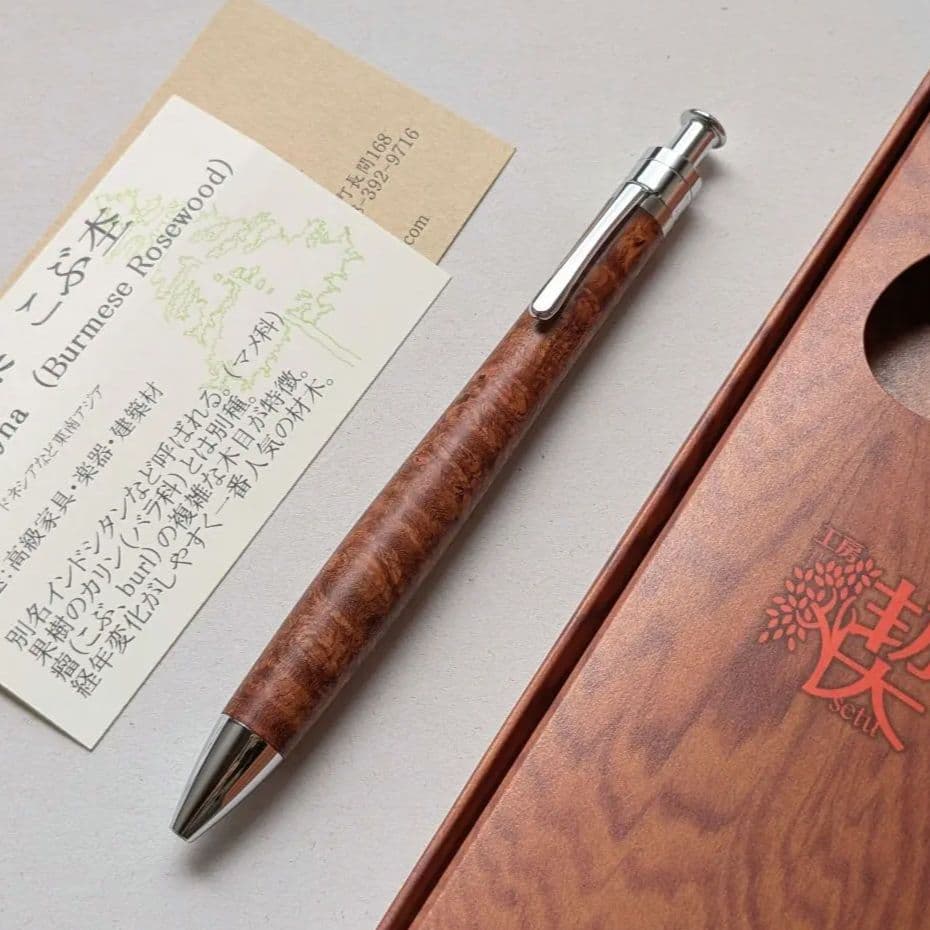 こぶ杢
na (Burmese Rosewood)
ドネシアなど東南アジア
:高級家具・楽器・建築材
別名インドシタンなど呼ばれる。(マメ科)
果樹のカリン(バラ科)とは別種。
瘤(こぶ、burl)の複雑な木目が特徴。
経年変化がしやすく一番人気の材木。
町長間168
392-9716
.com
工房
setu